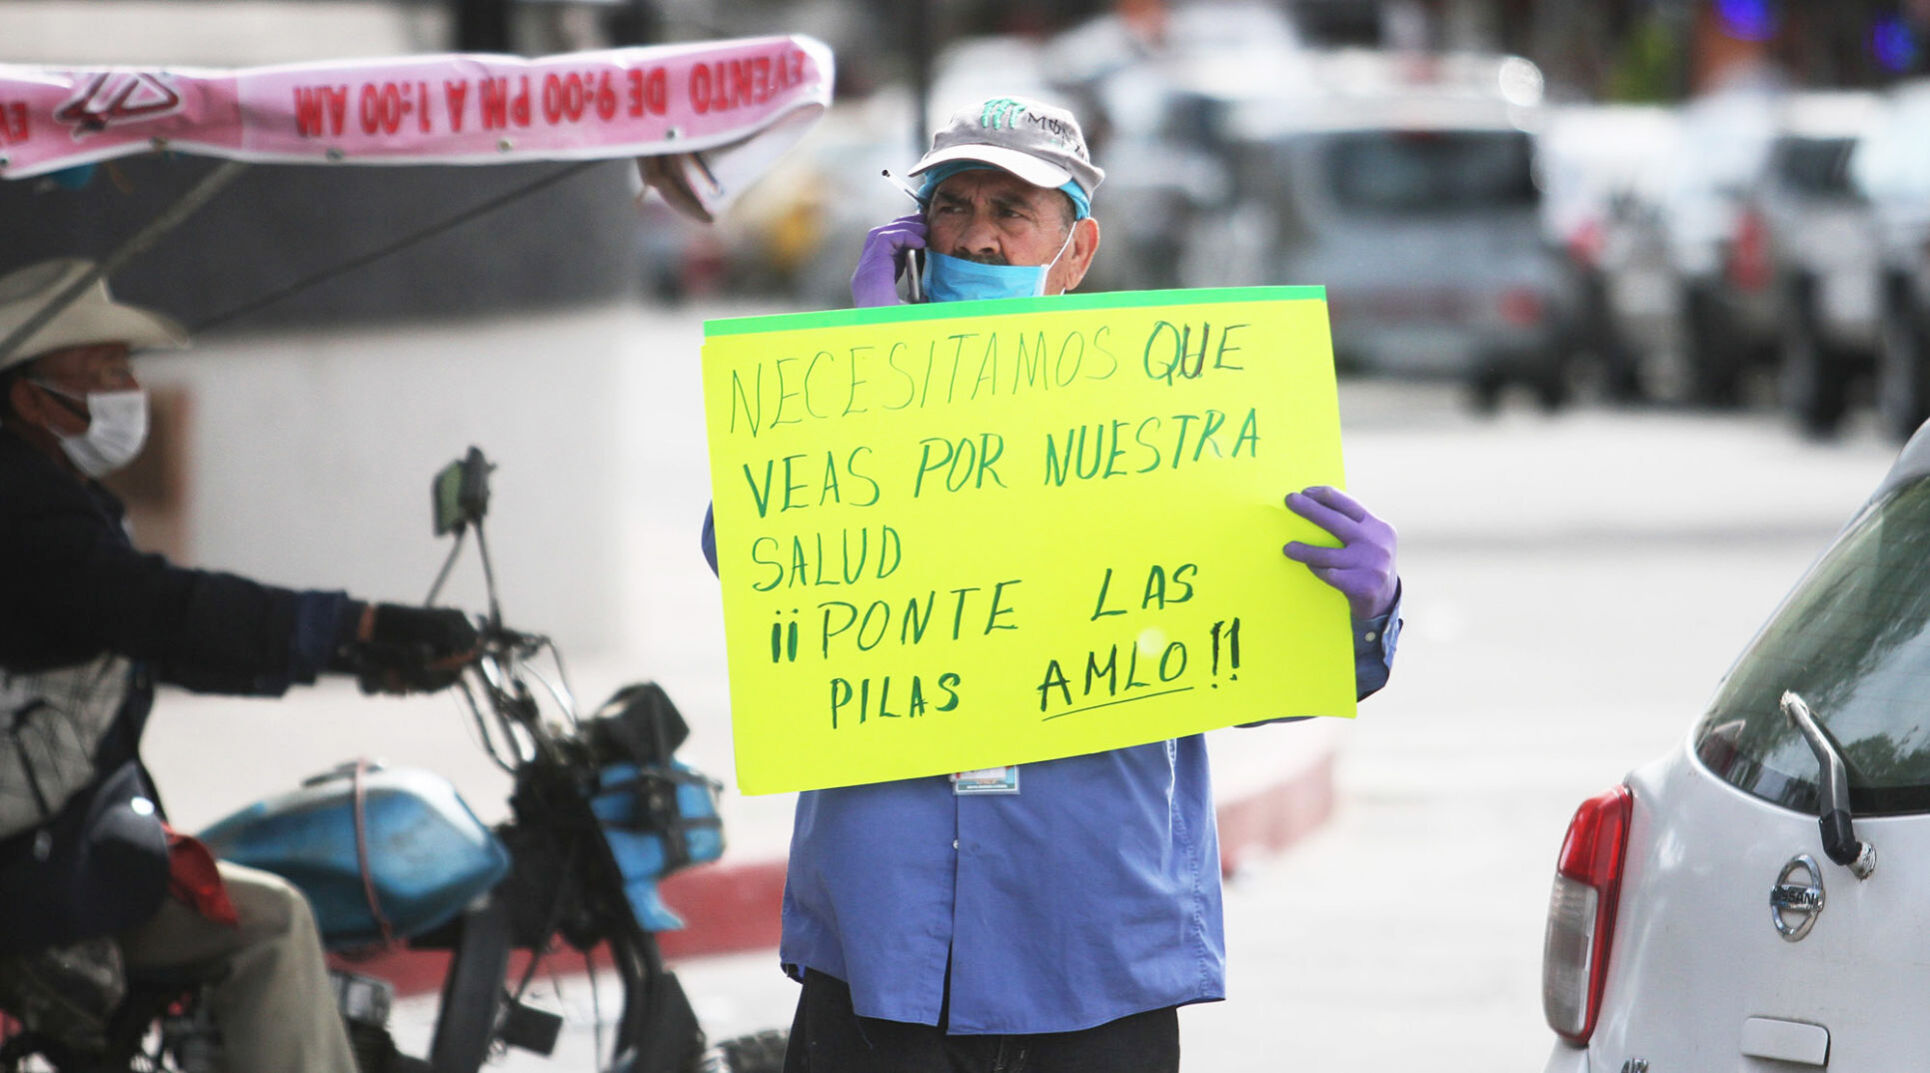 EVENTO DE 9:00 PM A 1:00 AM
EV
NECESITAMOS QUE
VEAS POR NUESTRA
SALUD
¡¡PONTE LAS
PILAS AMLO!!
NISSAN